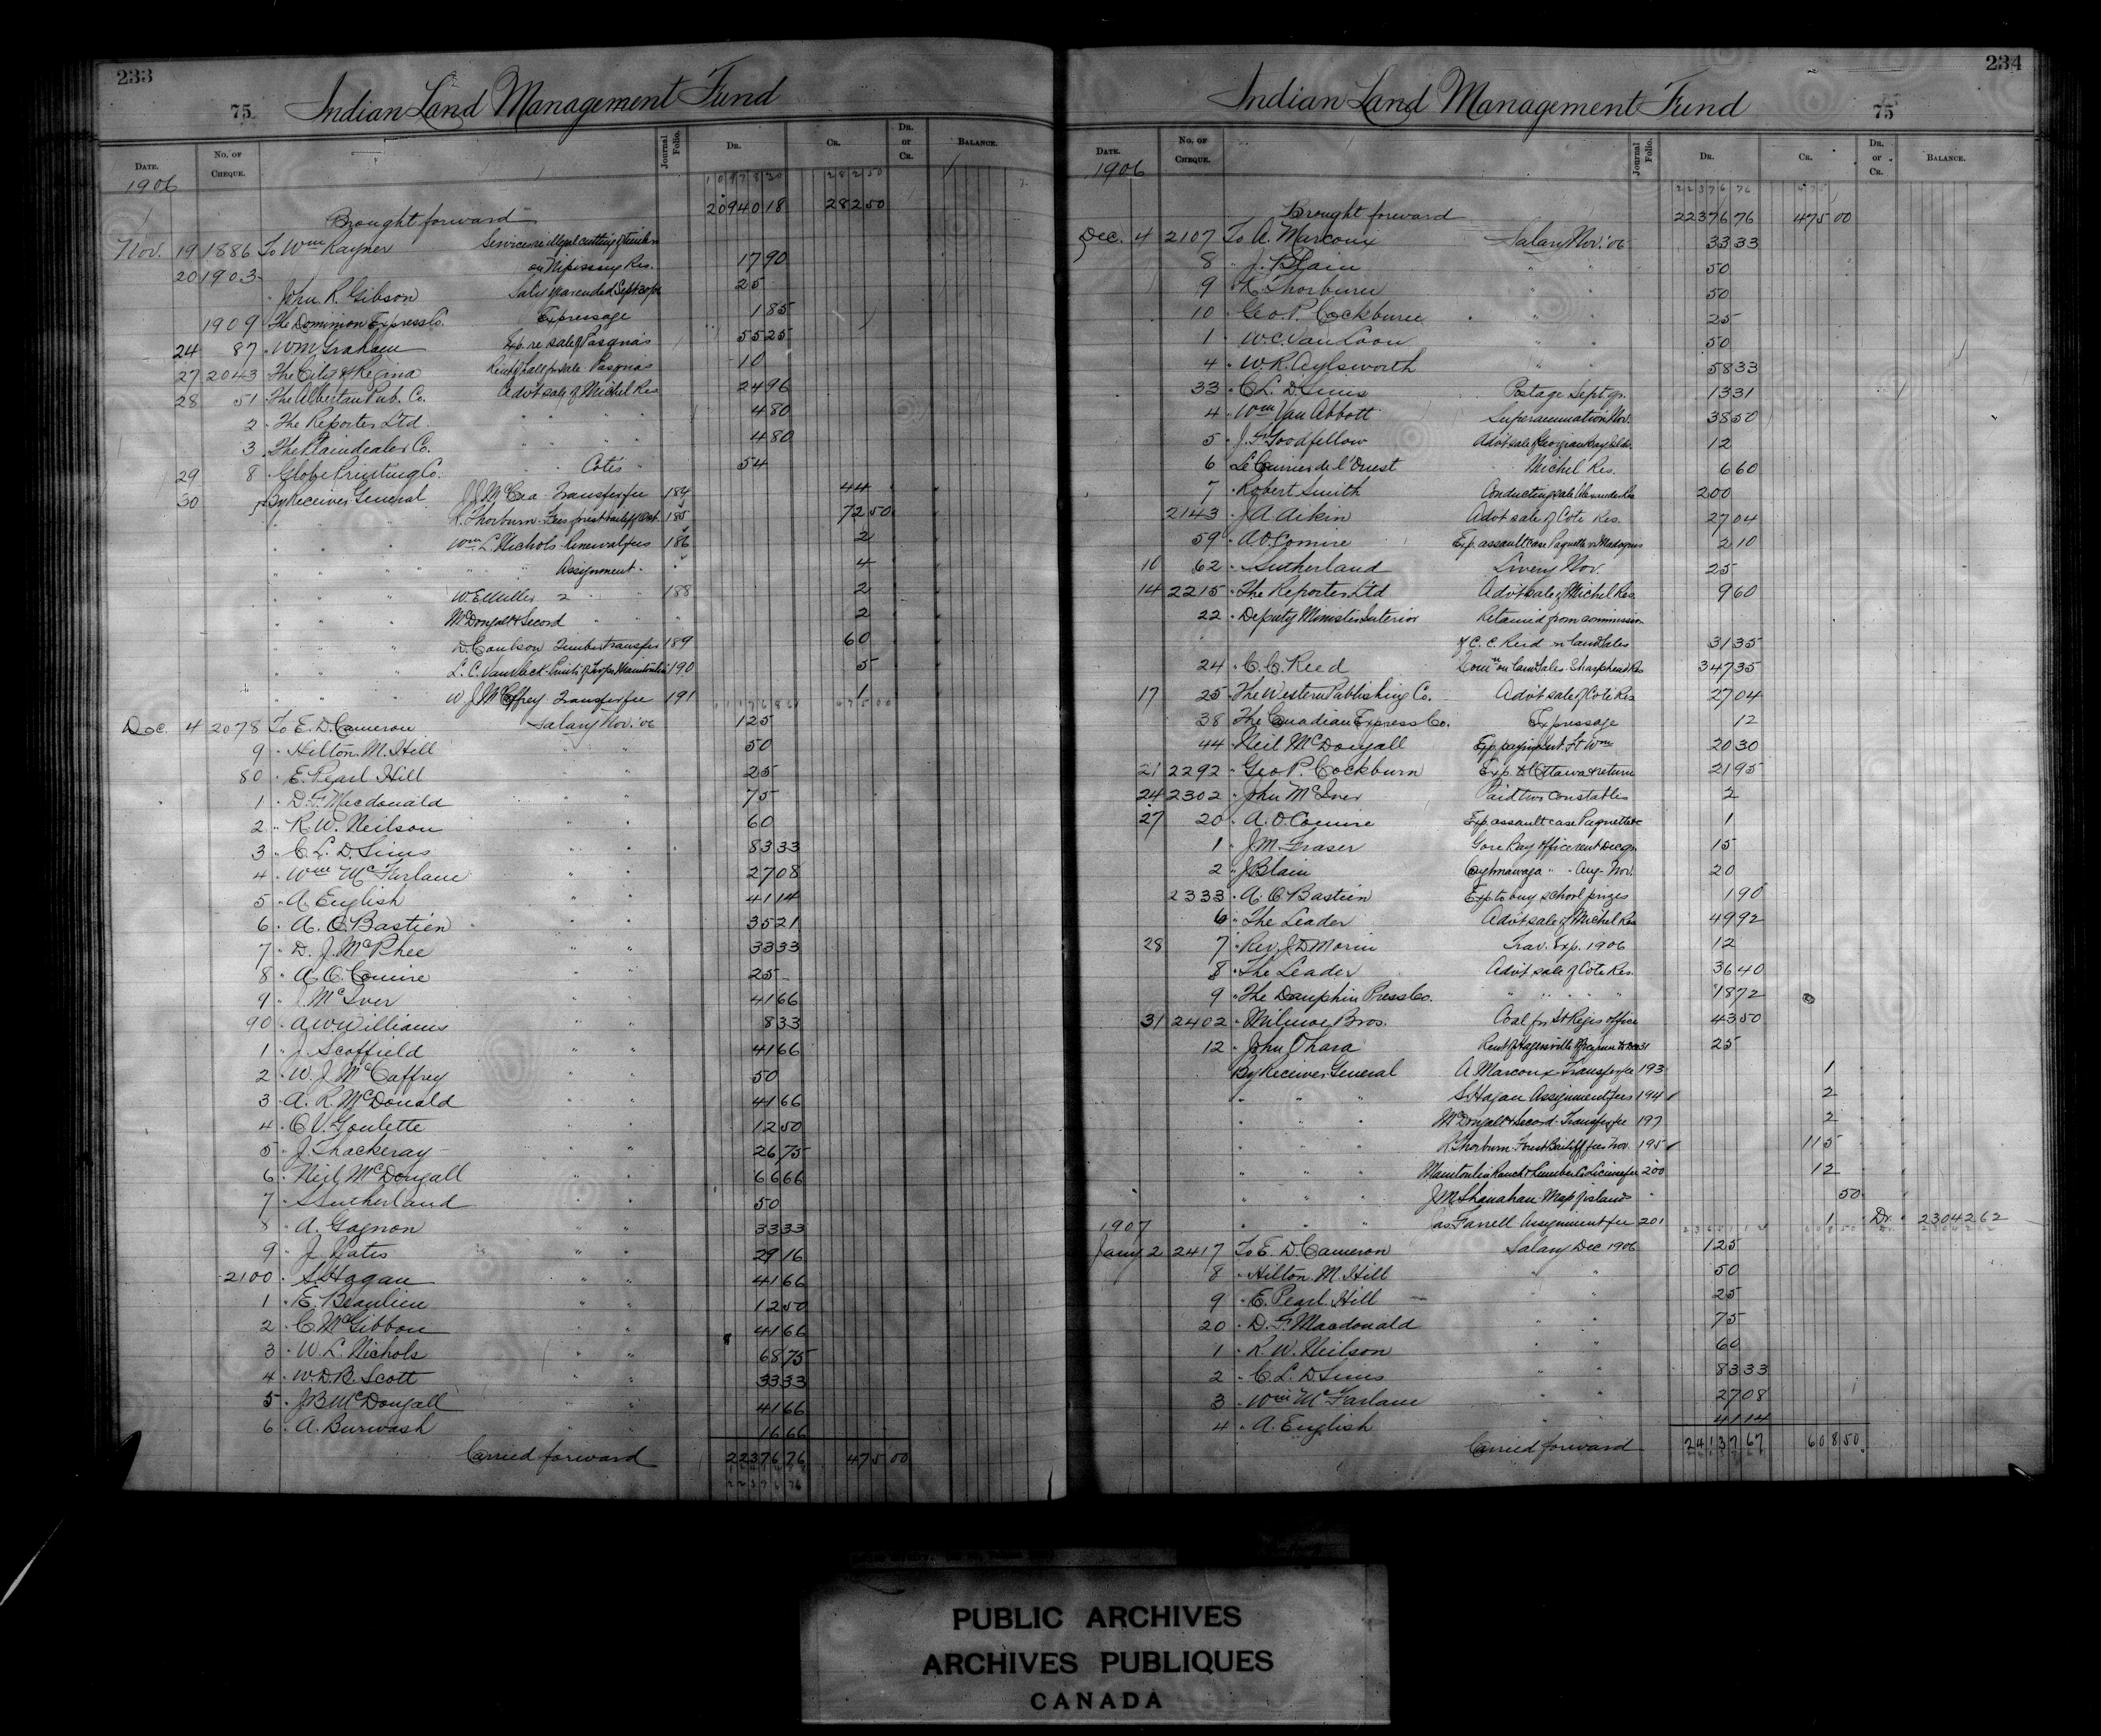 233
75 Indian Land Management Fund
DATE. No. OF CHEQUE. Journal Folio. DR. CR. DR. or CR. BALANCE.
1906 10978 30 282 50
Brought forward 20940 18 282 50
Nov. 19 1886 To Wm Rayner Services re illegal cutting of timber
on Nipissing Res. 17 90
20 1903 " John R. Gibson Saly year ended Sept 30/06 25
1909 " The Dominion Express Co. Expressage 1 85
24 87 " W M Graham Exp. re sale of Pasquas 55 25
27 2043 " The City of Regina Rent of hall for sale Pasquas 10
28 51 " The Albertan Pub. Co. Advt sale of Michel Res 24 96
2 " The Reporter Ltd. " " " 4 80
3 " The Plaindealer Co. " " " 4 80
29 8 " Globe Printing Co. " Cotes " 54
30 By Receiver General J.J. McCrea Transfer fee 184 44
" " " R. Thorburn Fees forest bailiff Oct. 185 72 50
" " " Wm L. Nichols Renewal fees 186 2
" " " " " Assignment " " 4
" " " W. E. Miller 2 " " 188 2
" " " McDougall & Secord " " " 2
" " " D. Coulson Timber transfer 189 60
" " " 190 5
" " " W. J. McCaffrey Transfer fee 191 1
Dec. 4 2078 To E. D. Cameron Salary Nov. '06 125
9 " Hilton M. Hill " " 50
80 " E. Pearl Hill " " 25
1 " D. F. Macdonald " " 75
2 " R. W. Neilson " " 60
3 " C. L. D. Sims " " 83 33
4 " Wm McFarlane " " 27 08
5 " A. English " " 41 14
6 " A. O. Bastien " " 35 21
7 " D. J. McPhee " " 33 33
8 " A. O. Comire " " 25
9 " J. McIver " " 41 66
90 " A W Williams " " 8 33
1 " J. Scoffield " " 41 66
2 " W. J. McCaffrey " " 50
3 " A. R. McDonald " " 41 66
4 " O. V. Goulette " " 12 50
5 " J. Thackeray " " 26 75
6 " Neil McDougall " " 66 66
7 " S Sutherland " " 50
8 " A. Gagnon " " 33 33
9 " J. Yates " " 29 16
2100 " S. Hagan " " 41 66
1 " E. Beaulieu " " 12 50
2 " C. McGibbon " " 41 66
3 " W. L. Nichols " " 68 75
4 " W. D. B. Scott " " 33 33
5 " J B McDougall " " 41 66
6 " A. Burwash " " 16 66
Carried forward 22376 76 475 00
22376 76
234
Indian Land Management Fund 75
DATE. No. OF CHEQUE. Journal Folio. DR. CR. DR. or CR. BALANCE.
1906 22376 76 475
Brought forward 22376 76 475 00
Dec. 4 2107 To A. Marcoux Salary Nov. '06 33 33
8 " J. Blain " " 50
9 " R. Thorburn " " 50
10 " Geo P. Cockburn " " 25
1 " W. C. Van Loon " " 50
4 " W. R. Aylsworth " " 58 33
33 " C. L. D. Sims Postage Sept qr. 13 31
4 " Wm Van Abbott Superannuation Nov. 38 50
5 " J. Goodfellow Advt sale Georgian Bay Islds. 12
6 " Le Courrier de l'Ouest " Michel Res. 6 60
7 " Robert Smith Conducting sale Alexander Res 200
2143 " J. A. Aikin Advt sale of Cote Res. 27 04
59 " A. O. Comire Exp. assault case Paquette vs 2 10
10 62 " Sutherland Livery Nov. 25
14 2215 " The Reporter Ltd Advt sale of Michel Res. 9 60
22 " Deputy Minister Interior Retained from commission
of C. C. Reid on land sales 31 35
24 " C. C. Reed Comn on land sales Sharphead Res 347 35
17 25 " The Western Publishing Co. Advt sale of Cote Res 27 04
38 " The Canadian Express Co. Expressage 12
44 " Neil McDougall Exp. payment Ft Wm 20 30
21 2292 " Geo P. Cockburn Exp. to Ottawa & return 21 95
24 2302 " John McIver Paid two constables 2
27 20 " A. O. Comire Exp. assault case Paquette &c 1
1 " J. M. Fraser Gore Bay office rent Dec qr. 15
2 " J Blain Caghnawaga " " Aug - Nov. 20
2333 " A. O. Bastien Exp to buy school prizes 1 90
6 " The Leader Advt sale of Michel Res 49 92
28 7 " Rev. J. D. Morin Trav. Exp. 1906 12
8 " The Leader Advt sale of Cote Res. 36 40
9 " The Dauphin Press Co. " " " " 18 72
31 2402 " Milmoe Bros. Coal for St Regis office 43 50
12 " John Ohara Rent of Hagersville 25
By Receiver General A Marcoux Transfer fee 193 1
" " " S. Hagan Assignment fees 194 2
" " " McDougall & Secord Transfer fee 197 2
" " " R. Thorburn Forest Bailiff fees Nov. 195 115
" " " Manitoulin Ranch & Lumber Co License fee 200 12
" " " J M Shanahan Map of islands " 50
1907 " " " Jas Farrell Assignment fee 201 1 Dr. 23042 62
Jany 2 2417 To E. D. Cameron Salary Dec 1906 125
8 " Hilton M. Hill " " 50
9 " E. Pearl Hill " " 25
20 " D. F. Macdonald " " 75
1 " R. W. Neilson " " 60
2 " C. L. D. Sims " " 83 33
3 " Wm McFarlane " " 27 08
4 " A. English " " 41 14
Carried forward 24137 67 608 50
PUBLIC ARCHIVES
ARCHIVES PUBLIQUES
CANADA